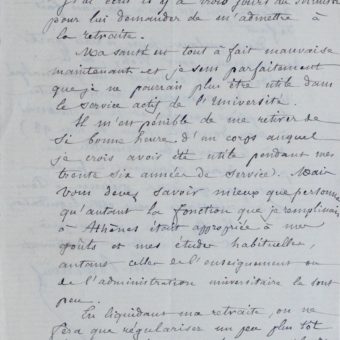 J'ai écrit il y a trois jours au
pour lui demander de m'admettre à
la retraite.
Ma santé est tout à fait mauvaise
maintenant et je sens parfaitement
que je ne pourrais plus être utile dans
le service actif de l'Université.
Il m'est pénible de me retirer de
si bonne heure d'un corps auquel
je crois avoir été utile pendant mes
trente six années de service. Mais
vous devez savoir mieux que personne
qu'autant la fonction que je remplissais
à Athènes était appropriée à mes
goûts et mes études habituelles,
autant celles de l'enseignement ou
de l'administration universitaire le sont
peu.
En liquidant ma retraite, on ne
fera que régulariser un peu plus tôt